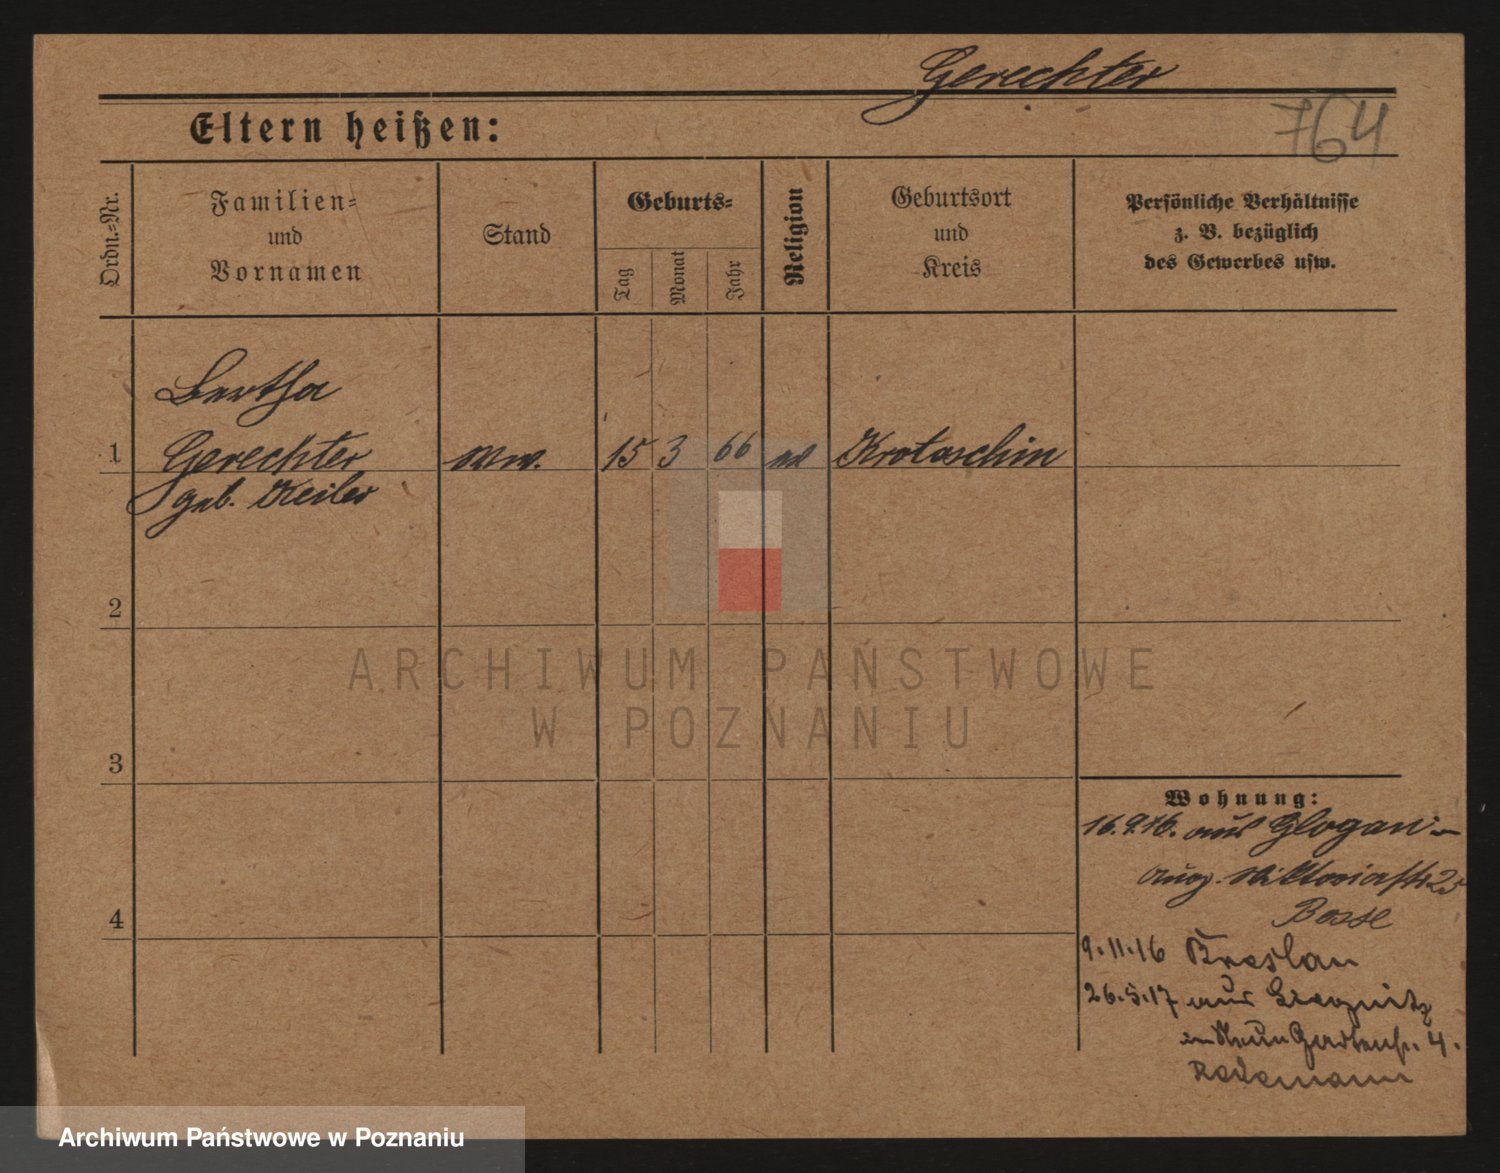 Gerechter
764
Eltern heißen:
Ordn.-Nr.
Familien-
und
Vornamen
Stand
Geburts-
Tag
Monat
Jahr
Religion
Geburtsort
und
Kreis
Persönliche Verhältnisse
z. B. bezüglich
des Gewerbes usw.
Bertha
1 Gerechter Ww. 15 3 66 Krotoschin
geb. Keiler
2
3
4
Wohnung:
16.9.16. aus Glogau -
Aug. Viktoriastr 25
Bosse
9.11.16 Breslau
26.5.17 aus Liegnitz
Gartenstr. 4.
Redemann
ARCHIWUM PAŃSTWOWE
W POZNANIU
Archiwum Państwowe w Poznaniu